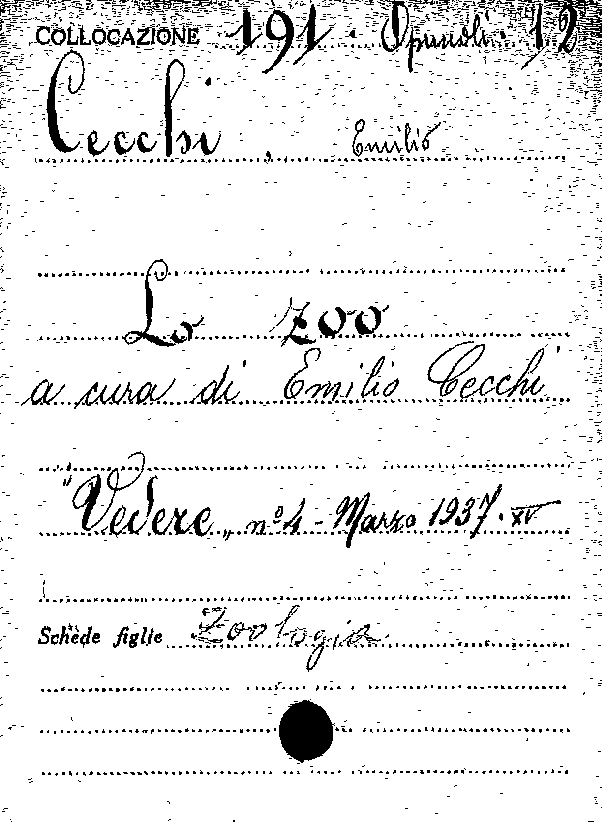 COLLOCAZIONE 191. Opuscoli: 12
Cecchi, Emilio
Lo zoo
a cura di Emilio Cecchi
"Vedere„ nº 4 - Marzo 1937. XV
Schede figlie Zoologia